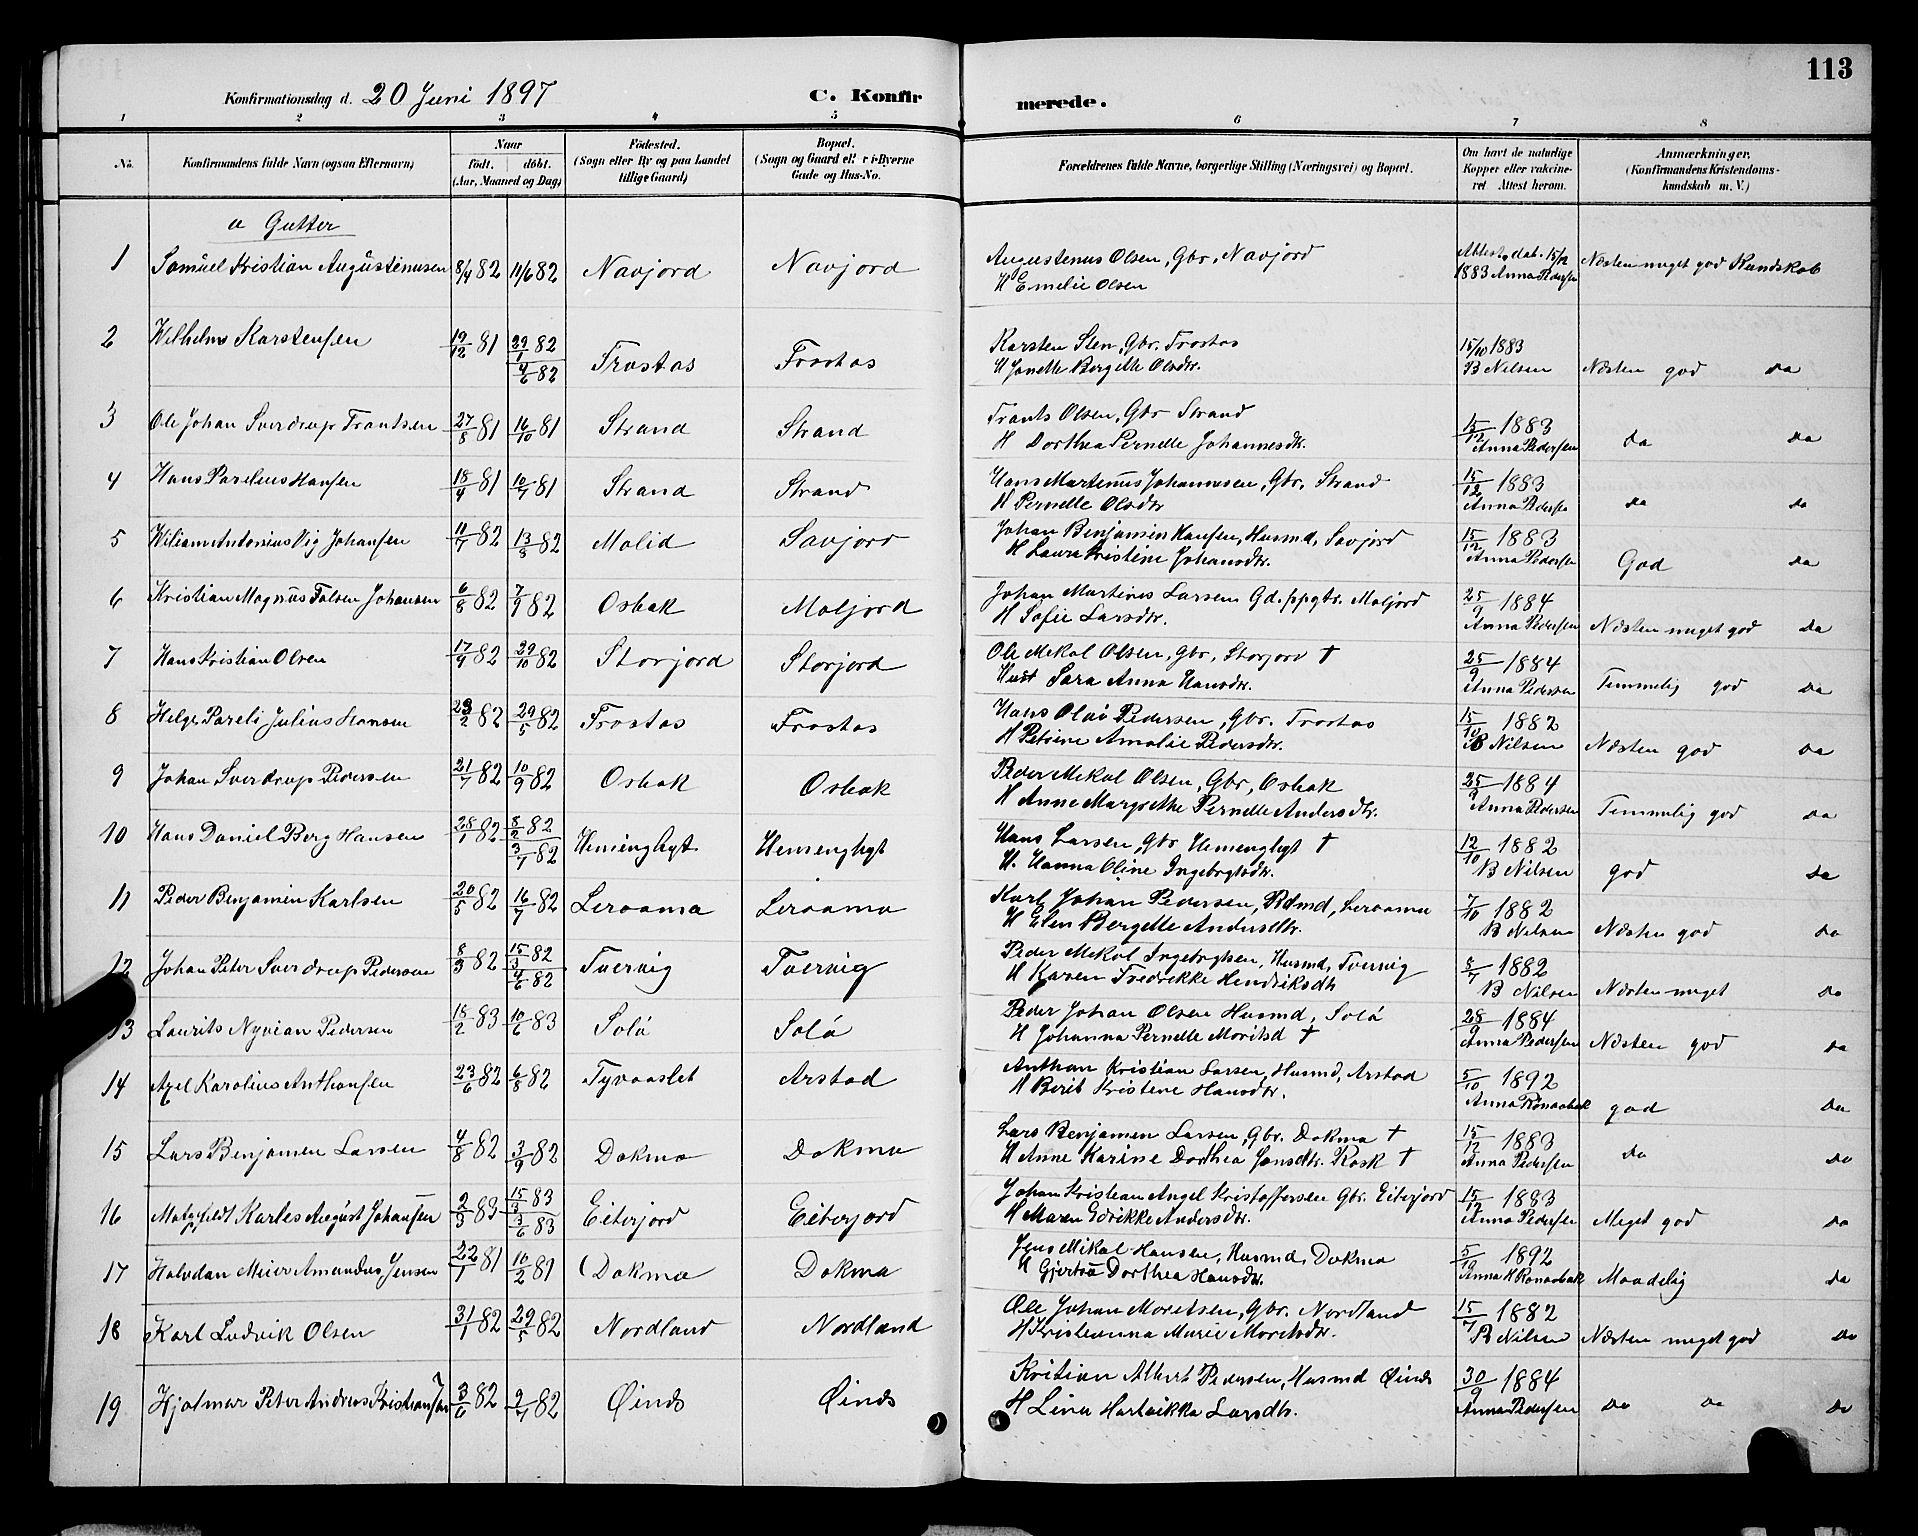 113
Konfirmationsdag d. 20 Juni 1897 C. Konfirmerede.
1 2 3 4 5 6 7 8
No. Konfirmandens fulde Navn (ogsaa Efternavn) Naar født. døbt. (Aar, Maaned og Dag) Fødested. (Sogn eller By og paa Landet tillige Gaard) Bopæl. (Sogn og Gaard ell r i Byerne Gade og Hus-No. Forældrenes fulde Navne, borgerlige Stilling (Næringsvei) og Bopæl. Om havt de naturlige Kopper eller vakcineret Attest herom. Anmærkninger. (Konfirmandens Kristendomskundskab m. V.)
a Gutter
1 Samuel Kristian Augustinusen 8/4 82 11/6 82 Navjord Navjord Augustenus Olsen, Gbr, Navjord Attest dat. 15/12 Næsten meget god Kundskab
H Emelie Olsen 1883 Anna Pedersen
2 Wilhelm Karstensen 19/12 81 29/1 82 4/6 82 Frostas Frostas Karsten Slen, Gbr. Frostas 15/10 1883
H Janette Bergette Olsdtr. B Nilsen Næsten god da
3 Ole Johan Sverdrup Frantsen 27/8 81 16/10 81 Strand Strand Frants Olsen, Gbr Strand 15/12 1883
H Dorthea Pernelle Johannesdtr. Anna Pedersen da da
4 Hans Parelius Hansen 18/4 81 10/7 81 Strand Strand Hans Martinus Johannesen, Gbr. Strand 15/12 1883
H Pernelle Olsdtr Anna Pedersen da da
5 Wiliam Antonius Vig Johansen 11/7 82 13/8 82 Molid Savjord Johan Benjamin Hansen, Husmd, Savjord 15/12 1883
H Laura Kristine Johansdtr. Anna Pedersen God da
6 Kristian Magnus Falsen Johansen 6/8 82 7/9 82 Osbak Moljord Johan Martines Larsen Gd. Moljord 25/9 1884
H Sofie Larsdtr. Anna Pedersen Næsten meget god da
7 Hans Kristian Olsen 17/9 82 29/10 82 Storjord Storjord Ole Mekal Olsen, Gbr, Storjord † 25/9 1884
Hust Sara Anna Hansdtr. Anna Pedersen Temmelig god da
8 Helge Pareli Julius Hansen 23/2 82 29/5 82 Frostas Frostas Hans Olai Pedersen, Gbr. Frostas 15/10 1882
H Petrine Amalie Pedersdtr. B Nilsen Næsten god da
9 Johan Sverdrup Pedersen 21/7 82 10/9 82 Osbak Osbak Peder Mekal Olsen, Gbr, Osbak 25/9 1884
H Anne Margrethe Pernelle Andersdtr. Anna Pedersen Temmelig god da
10 Hans Daniel Berg Hansen 28/1 82 8/2 82 3/7 82 Hemenghyt Hemenghyt Hans Larsen, Gbr Hemenghyt † 12/10 1882
H. Hanna Oline Ingebrgtsdtr. B Nilsen god da
11 Peder Benjamin Karlsen 20/5 82 16/7 82 Leroamo Leroamo Karl Johan Pedersen, Rdmd, Leroamo 7/10 1882
H Elen Bergette Andersdtr. B Nilsen Næsten god da
12 Johan Peter Sverdrup Pedersen 8/3 82 15/3 82 4/6 82 Tvervig Tvervig Peder Mekal Ingebrgtsen, Husmd, Tvervig 8/7 1882
H Karen Fredrikke Hendriksdtr B Nilsen Næsten meget da
13 Laurits Nyvian Pedersen 18/2 83 10/6 83 Solø Solø Peder Johan Olsen Husmd, Solø 28/9 1884
H Johanna Pernelle Moritsd † Anna Pedersen Næsten god da
14 Axel Karolius Anthonsen 23/6 82 6/8 82 Tyvaaslet Arstad Anthon Kristian Larsen, Husmd, Arstad 5/10 1892
H Berit Kristine Hansdtr. Anna Rønaabak god da
15 Lars Benjamen Larsen 4/8 82 3/9 82 Dokmo Dokmo Lars Benjamen Larsen, Gbr. Dokmo † 15/12 1883
H Anne Karine Dorthea Jensdtr. Rosk † Anna Pedersen da da
16 Karles August Johansen 2/3 83 15/3 83 3/6 83 Eiterjord Eiterjord Johan Kristian Angel Kristoffersen Gbr. Eiterjord 15/12 1883
H Maren Edrikke Andersdtr. Anna Pedersen Meget god da
17 Halvdan Meier Amandus Jensen 22/1 81 10/2 81 Dokmo Dokmo Jens Mikal Hansen, Husmd, Dokmo 5/10 1892
H Gjertrø Dorthea Hansdtr. Anna H Rønaabak Maadelig da
18 Karl Ludvik Olsen 31/1 82 29/5 82 Nordland Nordland Ole Johan Moretsen, Gbr. Nordland 15/7 1882
H Kristianna Marie Moretsdtr. B Nilsen Næsten meget god da
19 Hjalmar Peter Andreas Kristiansen 3/6 82 2/7 82 Øines Øines Kritian Albert Pedersen, Husmd Øines 30/9 1884
H Lina Hartvikka Larsdtr. Anna Pedersen da da da